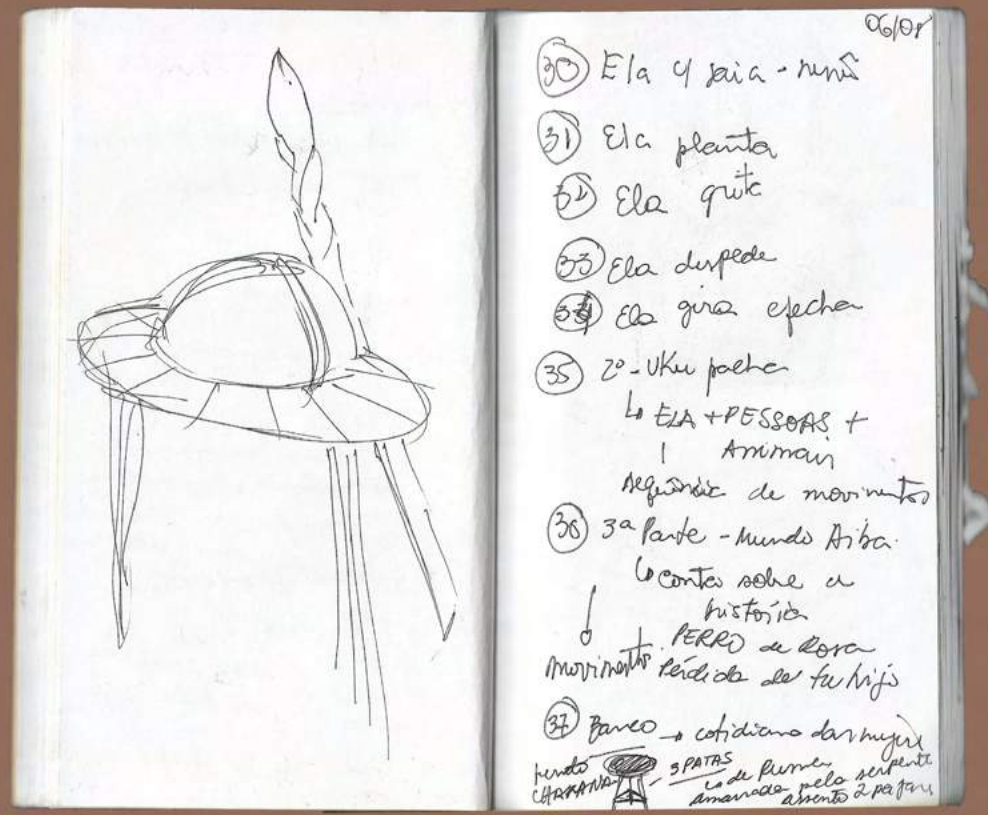 06/08
30 Ela y saia -
31 Ela planta
32 Ela grita
33 Ela despede
34 Ela gira e fecha
35 2º - UKu pacha
↳ ELA + PESSOAS +
Animais
sequência de movimentos
36 3ª Parte - Mundo Aiba.
↳ conta sobre a
história
PERRO de Rosa
movimento. Pérdida de tu hijo
37 Banco → cotidiano das mujeres
CHAKANA 3 PATAS
↳ de Puma
amarrada pela serpente
assento 2